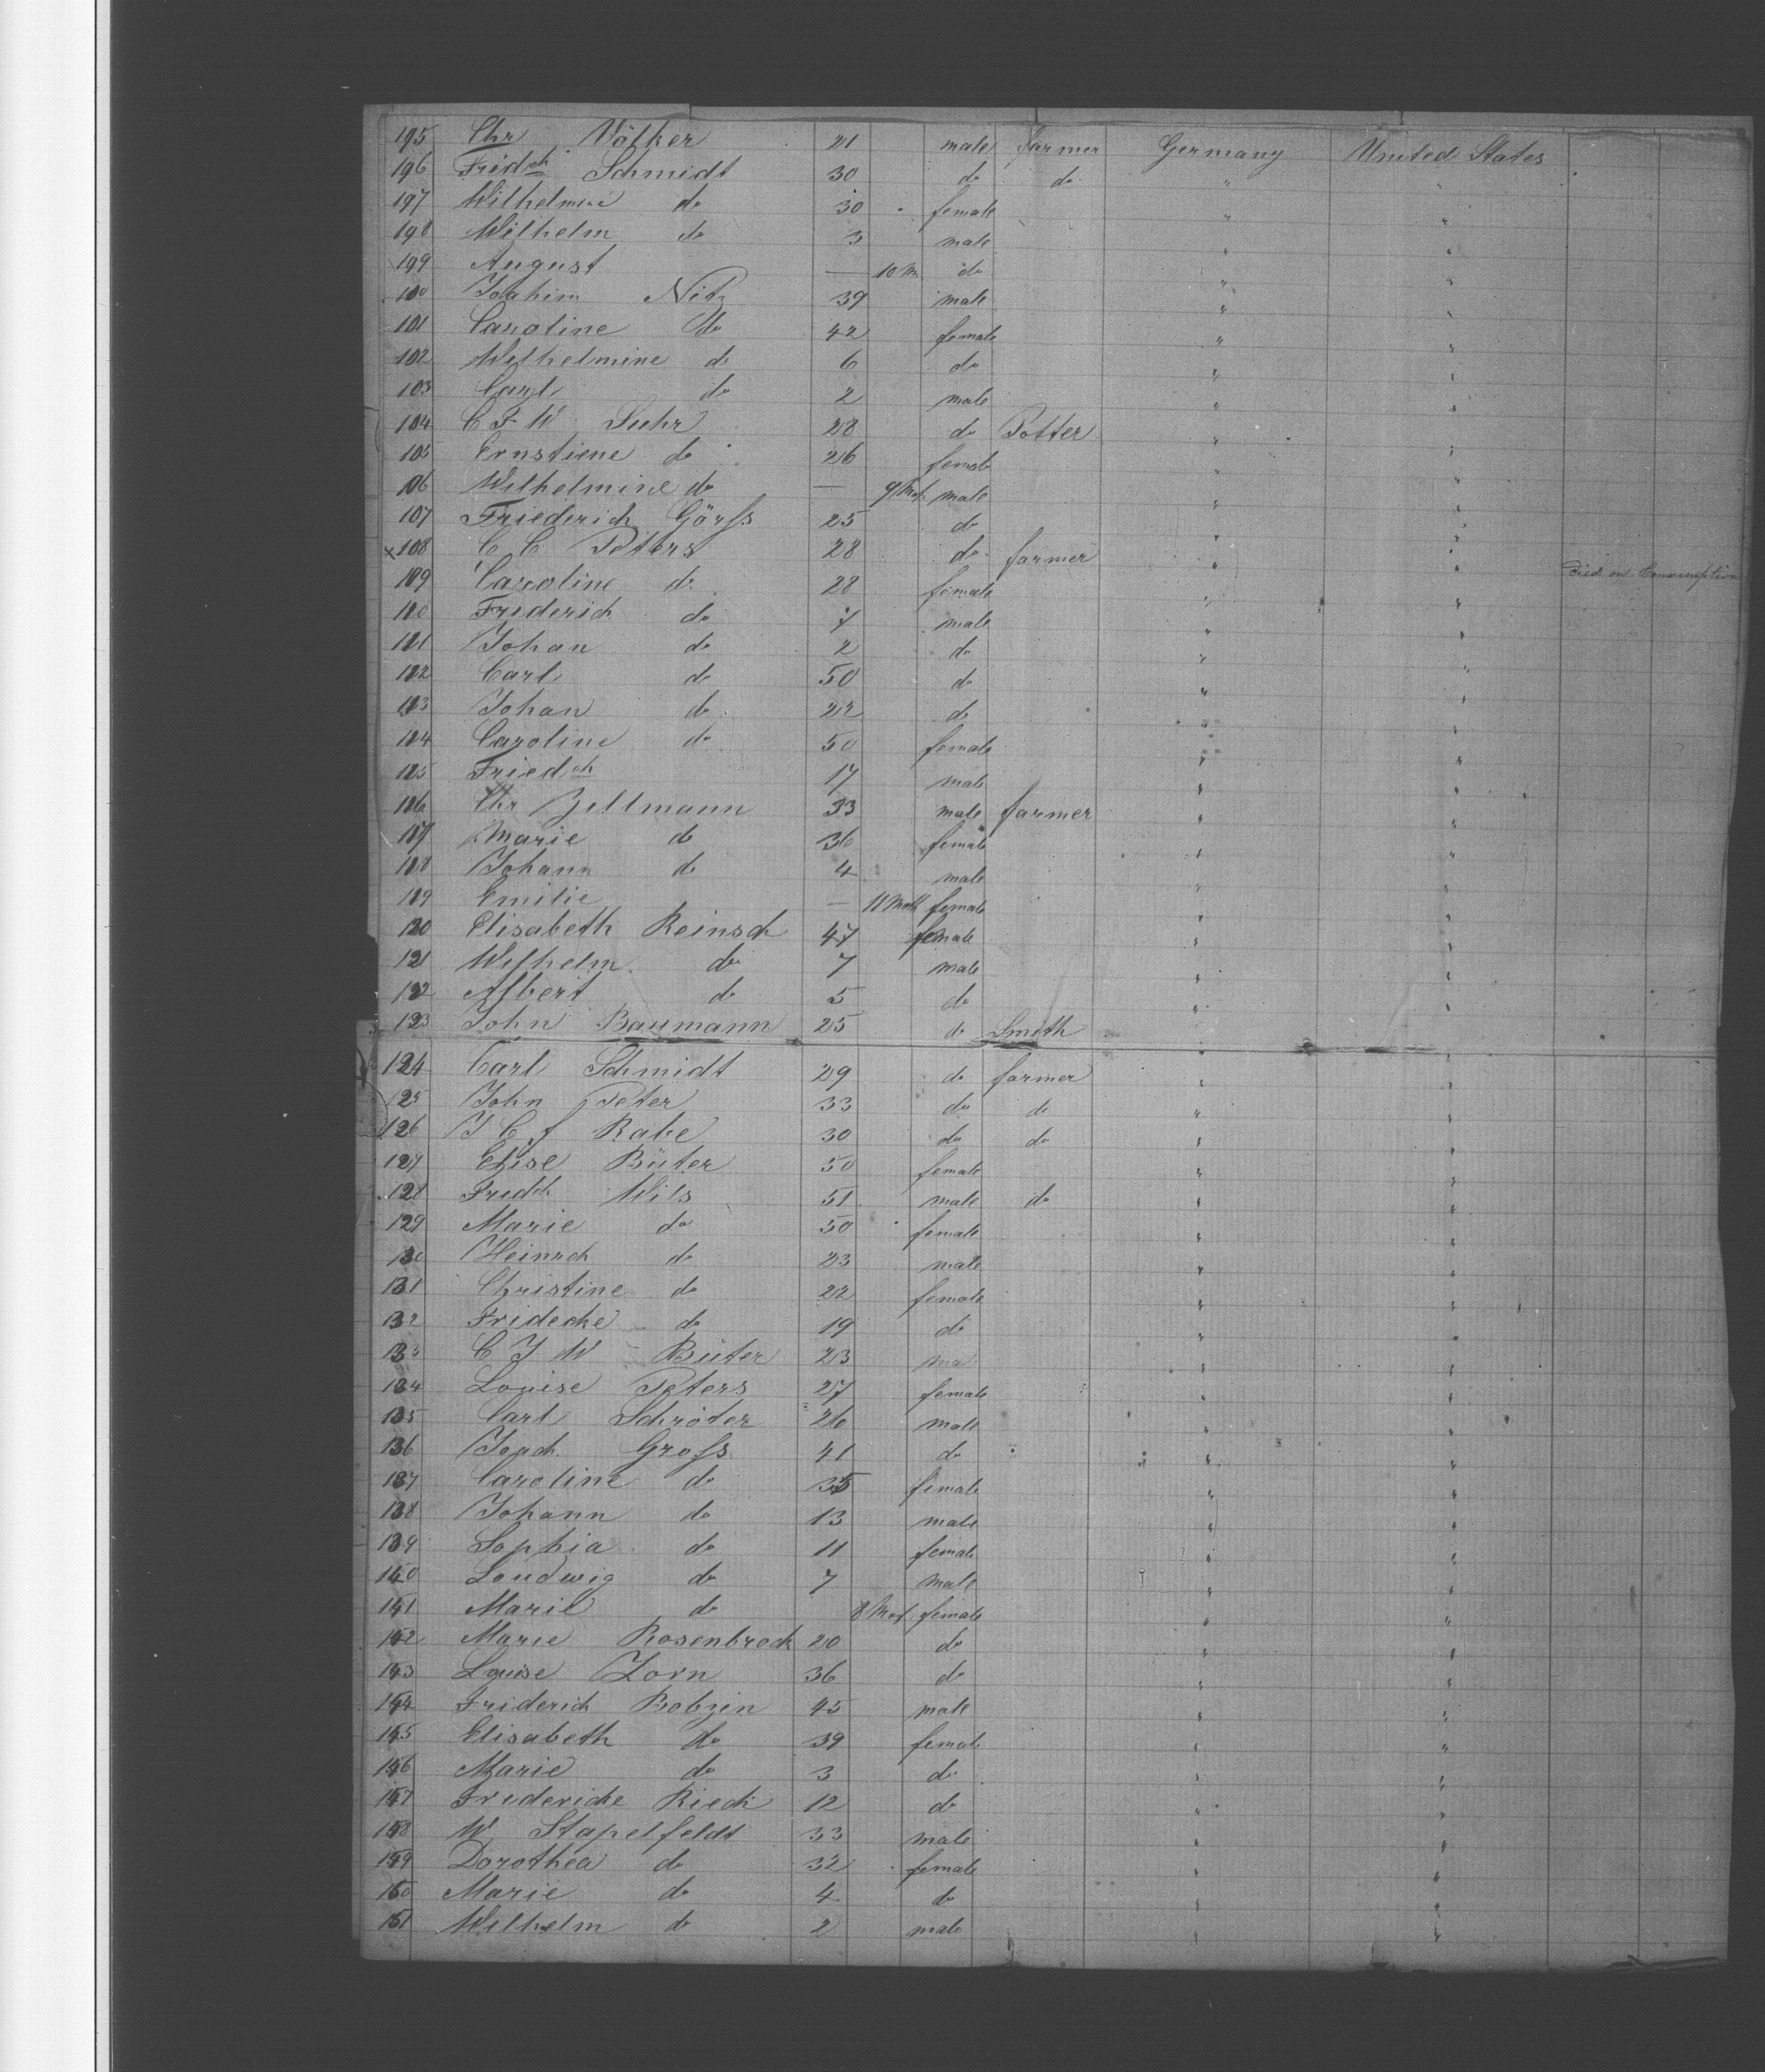 195 Chr Völker 21 male farmer Germany United States
196 Fridch Schmidt 30 do do " "
197 Wilhelmine do 30 female " "
198 Wilhelm do 3 male " "
199 August — 10 M do " "
100 Joahim Nitz 39 male " "
101 Caroline do 42 female " "
102 Wilhelmine do 6 do " "
103 Carl do 2 male " "
104 C F W Suhr 28 do Potter " "
105 Ernstiene do 26 female " "
106 Wilhelmine do — 9 Mot male " "
107 Friederich Görss 25 do " "
x108 C C Peters 28 do farmer " " Died on Consumption
109 Caroline do 28 female " "
110 Frederich do 7 male " "
111 Johan do 2 do " "
112 Carl do 50 do " "
113 Johan do 22 do " "
114 Caroline do 50 female " "
115 Friedch 17 male " "
116 Chr Zellmann 33 male farmer " "
117 Marie do 36 female " "
118 Johann do 4 male " "
119 Emilie — 11 Moth female " "
120 Elisabeth Reinsch 47 female " "
121 Wilhelm do 7 male " "
122 Albert do 5 do " "
123 John Baumann 25 do Smith " "
124 Carl Schmidt 29 do farmer " "
125 John Peter 33 do do " "
126 J C f Rabe 30 do do " "
127 Elise Büter 50 female " "
128 Fridch Wils 51 male do " "
129 Marie do 50 female " "
130 Heinrch do 23 male " "
131 Christine do 22 female " "
132 Frideche do 19 do " "
133 C J W Büter 23 mal " "
134 Louise Peters 27 female " "
135 Carl Schröter 26 male " "
136 Joach Gross 41 do " "
137 Caroline do 35 female " "
138 Johann do 13 male " "
139 Sophia do 11 female " "
140 Loudwig do 7 male " "
141 Marie do 8 Mot female " "
142 Marie Rosenbrock 20 do " "
143 Louise Zorn 36 do " "
144 Friderich Bobzin 45 male " "
145 Elisabeth do 39 female " "
146 Marie do 3 do " "
147 Friedericke Rieck 12 do " "
148 W Stapelfeldt 33 male " "
149 Dorothea do 32 female " "
150 Marie do 4 do " "
151 Wilhelm do 2 male " "